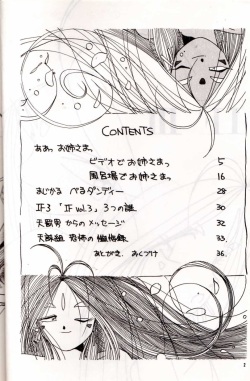 CONTENTS
ああっ お姉さまっ
ビデオでお姉さまっ 5
風呂場でお姉さまっ 16
まじかる べるダンディー 28
IF3 「IF vol.3」 3つの謎 30
天野男 からのメッセージ 32
天誅組 恐怖の 33
あとがき. おくづけ 36.
1